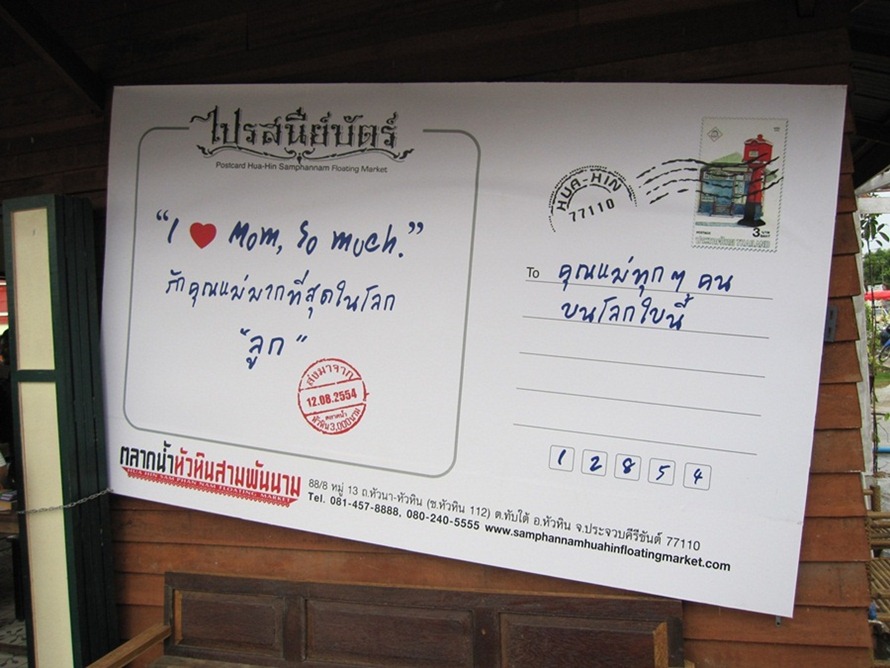 ไปรสนียบัตร์
Postcard Hua-Hin Samphannam Floating Market
"I ❤ Mom, So much."
รักคุณแม่มากที่สุดในโลก
"ลูก"
ส่งมาจาก
12.08.2554
ตลาดน้ำ
หัวหิน3,000นาม
HUA-HIN
77110
3
ประเทศไทย THAILAND
To คุณแม่ทุกๆ คน
บนโลกใบนี้
1 2 8 5 4
ตลาดน้ำหัวหินสามพันนาม
HUA HIN SAM PHAN NAM FLOATING MARKET
88/8 หมู่ 13 ถ.หัวนา-หัวหิน (ซ.หัวหิน 112) ต.ทับใต้ อ.หัวหิน จ.ประจวบคีรีขันต์ 77110
Tel. 081-457-8888, 080-240-5555 www.samphannamhuahinfloatingmarket.com